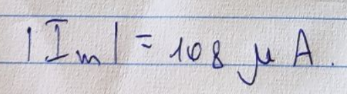 |Im| = 108 μA.